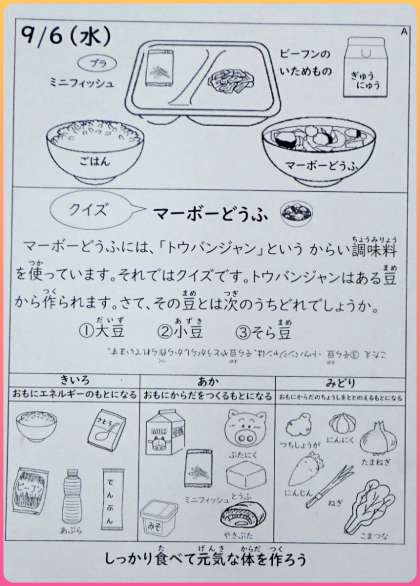 9/6(水)
A
プラ
ミニフィッシュ
ビーフンの
いためもの
ぎゅう
にゅう
ごはん
マーボーどうふ
クイズ
マーボーどうふ
マーボーどうふには、「トウバンジャン」という からい調味料
を使っています。それではクイズです。トウバンジャンはある豆
から作られます。さて、その豆とは次のうちどれでしょうか。
①大豆 ②小豆 ③そら豆
こたえ ③そら豆
きいろ
おもにエネルギーのもとになる
さとう
ビーフン
あぶら
でんぷん
あか
おもにからだをつくるもとになる
ぶたにく
ミニフィッシュ
とうふ
みそ
やきぶた
みどり
おもにからだのちょうしをととのえるもとになる
つちしょうが
にんにく
たまねぎ
にんじん
ねぎ
こまつな
しっかり食べて元気な体を作ろう